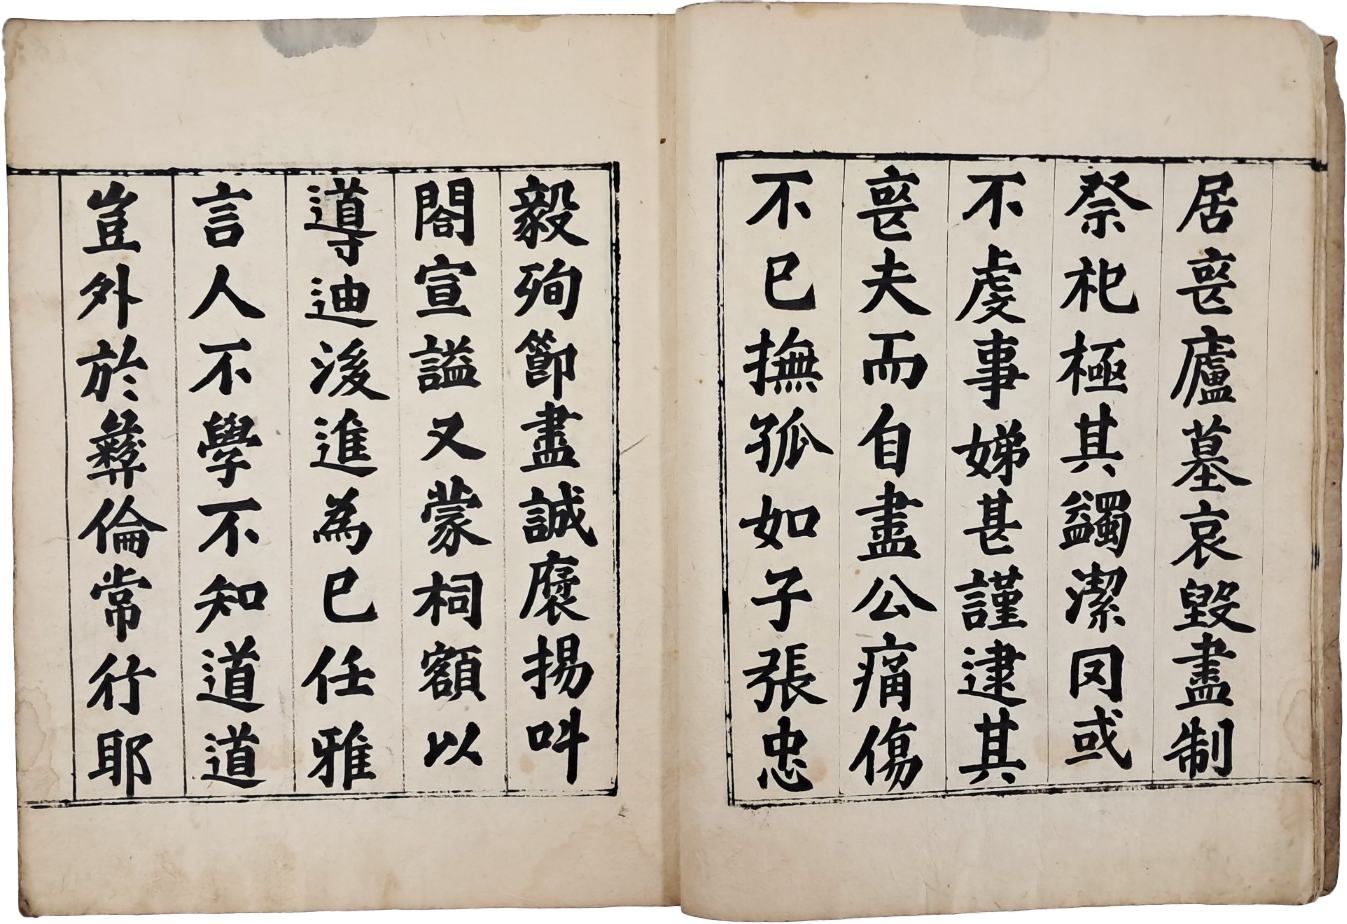 居䘮廬墓哀毀盡制
祭祀極其蠲潔罔或
不虔事娣甚謹逮其
䘮夫而自盡公痛傷
不已撫孤如子張忠
毅殉節盡誠褒揚叫
閤宣謚又蒙祠額以
導迪後進為已任雅
言人不學不知道道
豈外於彝倫常行耶